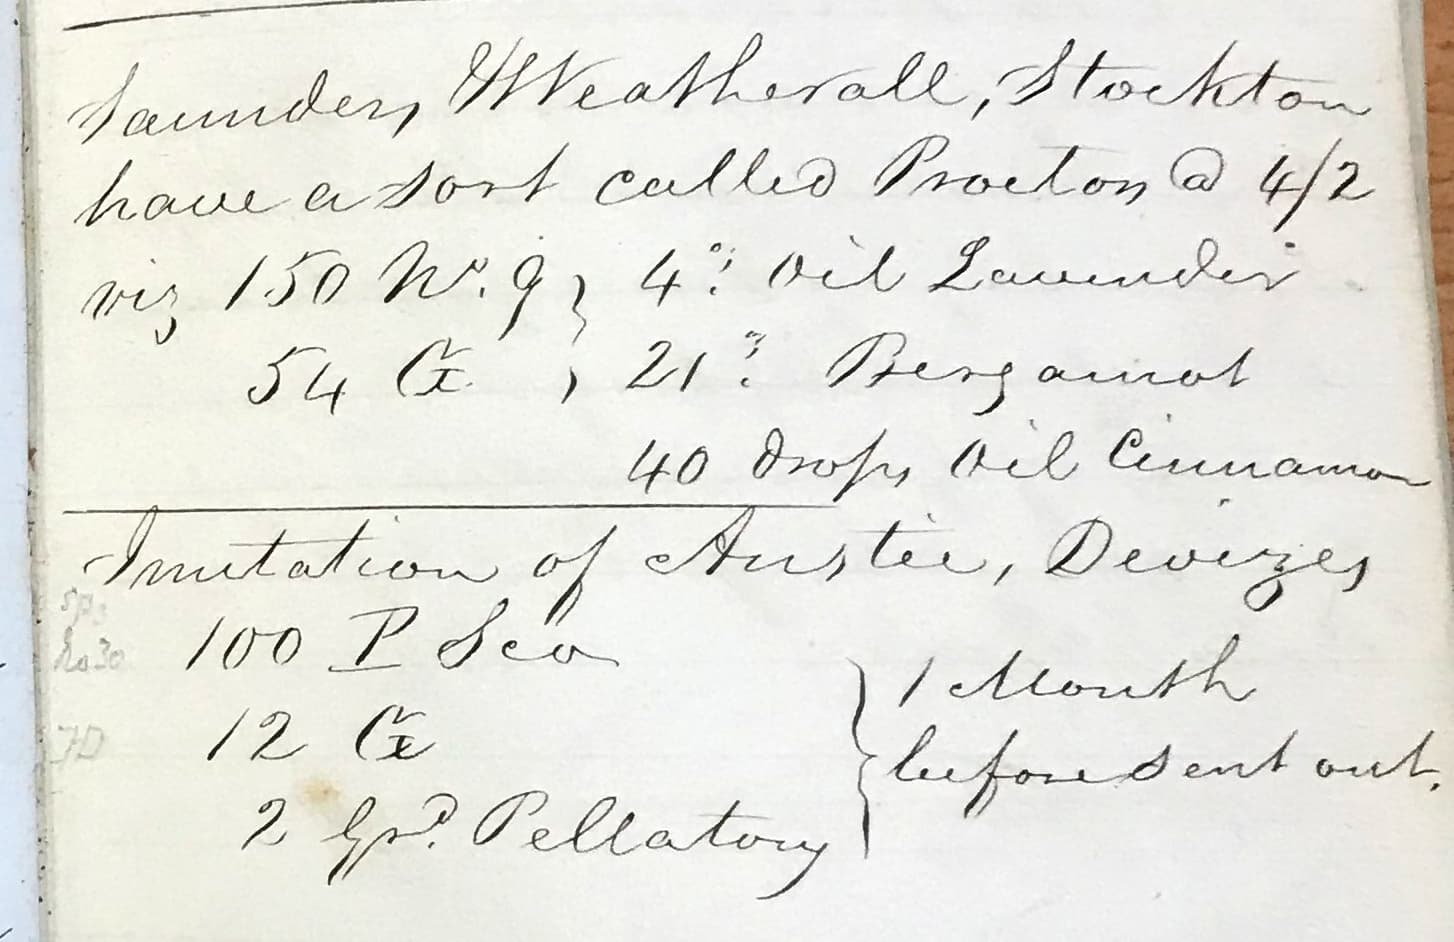 Saunders, Weatherall, Stockton
have a sort called Procton @ 4/2
viz 150 No. 9 } 4 oz Oil Lavender
54 Cx , 21 " Bergamot
40 drops Oil Cinnamon
Imitation of Anstie, Devizes
100 P Sco
12 Cx
2 Grd. Pellatory
} 1 Month
before sent out.